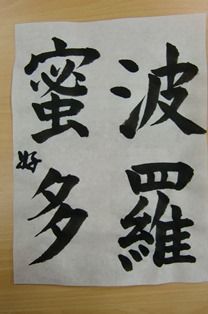 波羅
蜜多
好